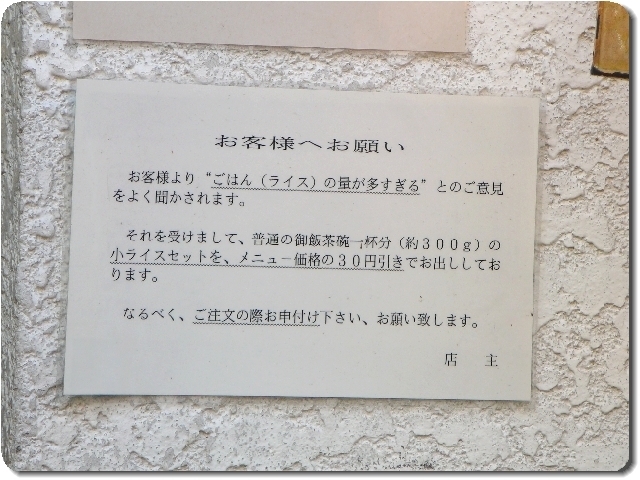 お客様へお願い
お客様より“ごはん（ライス）の量が多すぎる”とのご意見
をよく聞かされます。
それを受けまして、普通の御飯茶碗一杯分（約３００ｇ）の
小ライスセットを、メニュー価格の３０円引きでお出ししてお
ります。
なるべく、ご注文の際お申付け下さい、お願い致します。
店　主